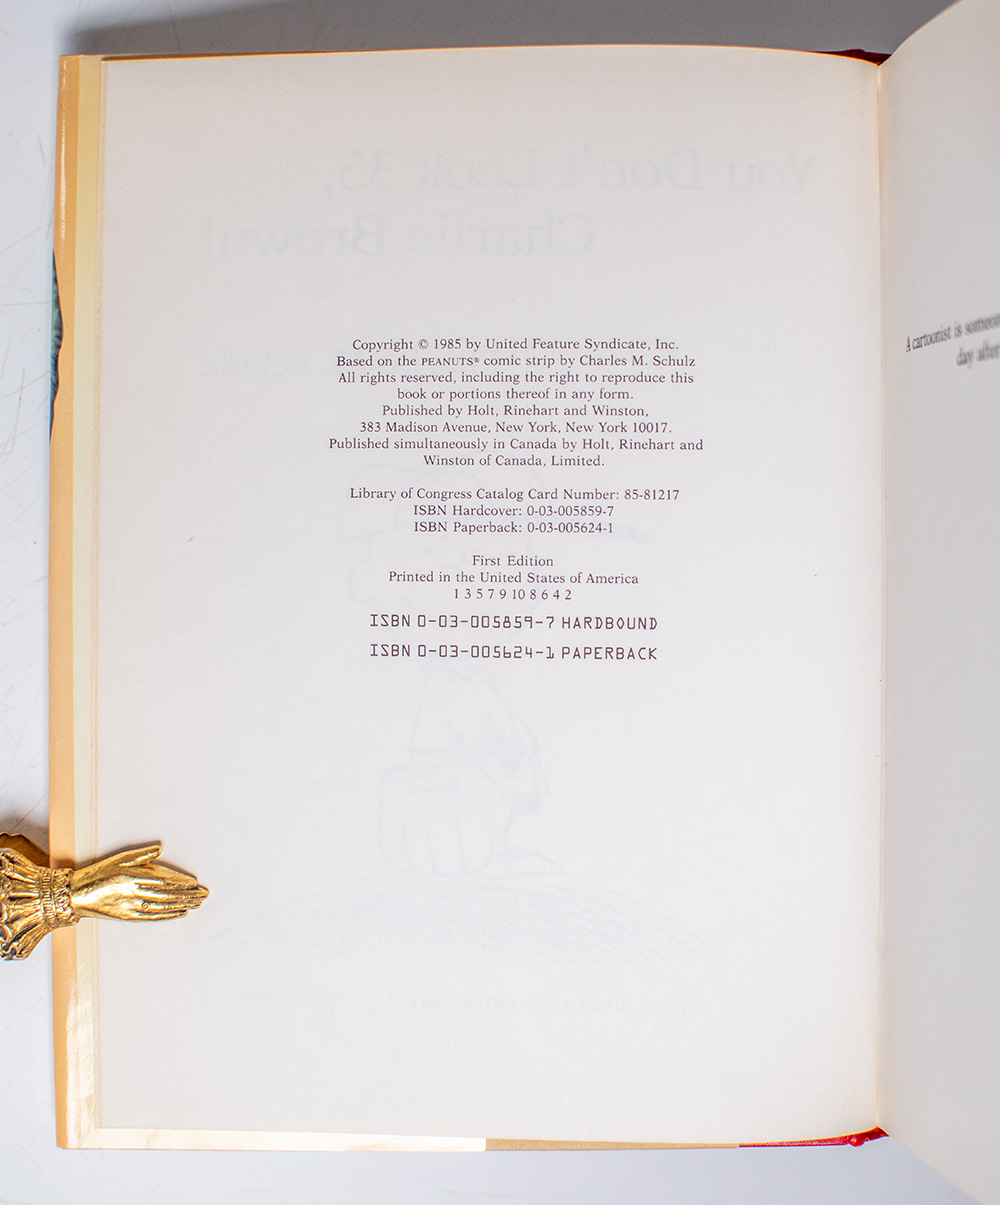 You Don't Look 35,
Charlie Brown!
Copyright © 1985 by United Feature Syndicate, Inc.
Based on the PEANUTS® comic strip by Charles M. Schulz
All rights reserved, including the right to reproduce this
book or portions thereof in any form.
Published by Holt, Rinehart and Winston,
383 Madison Avenue, New York, New York 10017.
Published simultaneously in Canada by Holt, Rinehart and
Winston of Canada, Limited.
Library of Congress Catalog Card Number: 85-81217
ISBN Hardcover: 0-03-005859-7
ISBN Paperback: 0-03-005624-1
First Edition
Printed in the United States of America
1 3 5 7 9 10 8 6 4 2
ISBN 0-03-005859-7 HARDBOUND
ISBN 0-03-005624-1 PAPERBACK
A cartoonist is someone
day after